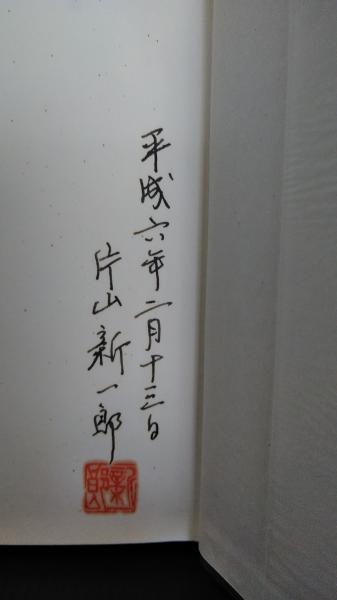 平成六年二月十三日
片山新一郎